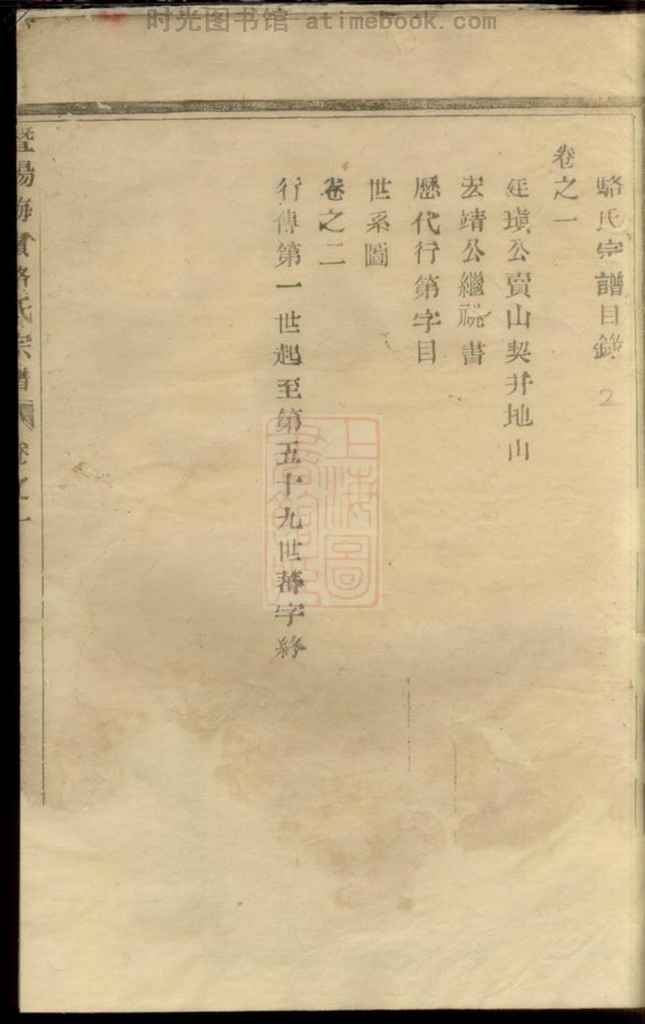 时光图书馆 atimebook.com
駱氏宗譜目錄
2
卷之一
廷瑱公賣山契并地山
宏靖公繼書
歷代行第字目
世系圖
卷之二
行傳第一世起至第五十九世蕃字終
暨陽梅嶺駱氏宗譜 卷之一
上海圖書館藏